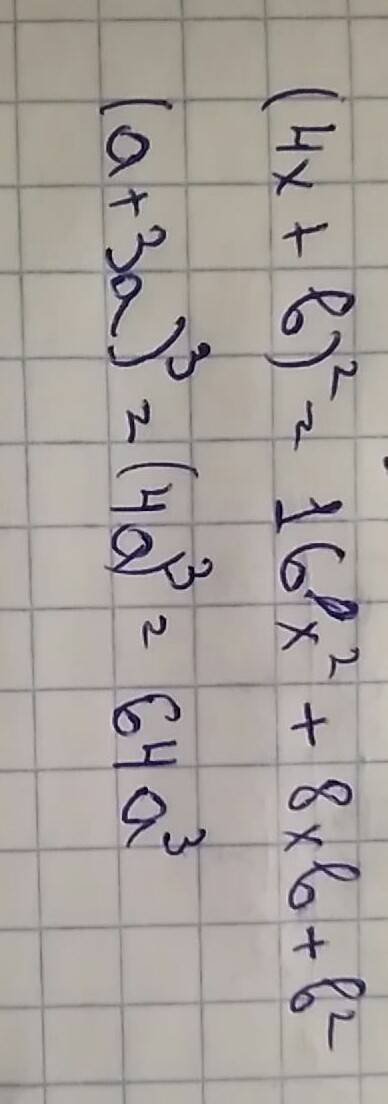 (4x + b)² = 16x² + 8xb + b²
(a + 3a)³ = (4a)³ = 64a³